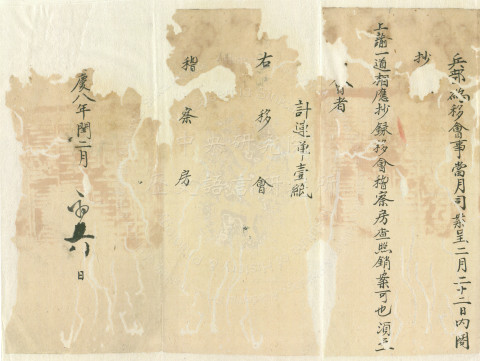 兵部為移會事當月司案呈二月二十二日内閣
抄
上諭一道相應抄録移會稽察房查照銷案可也須至
會者
計連單壹紙
右移會
稽察房
慶八年閏二月
日